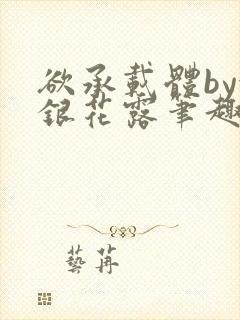 欲承載體by
銀花露筆趣
藝苒